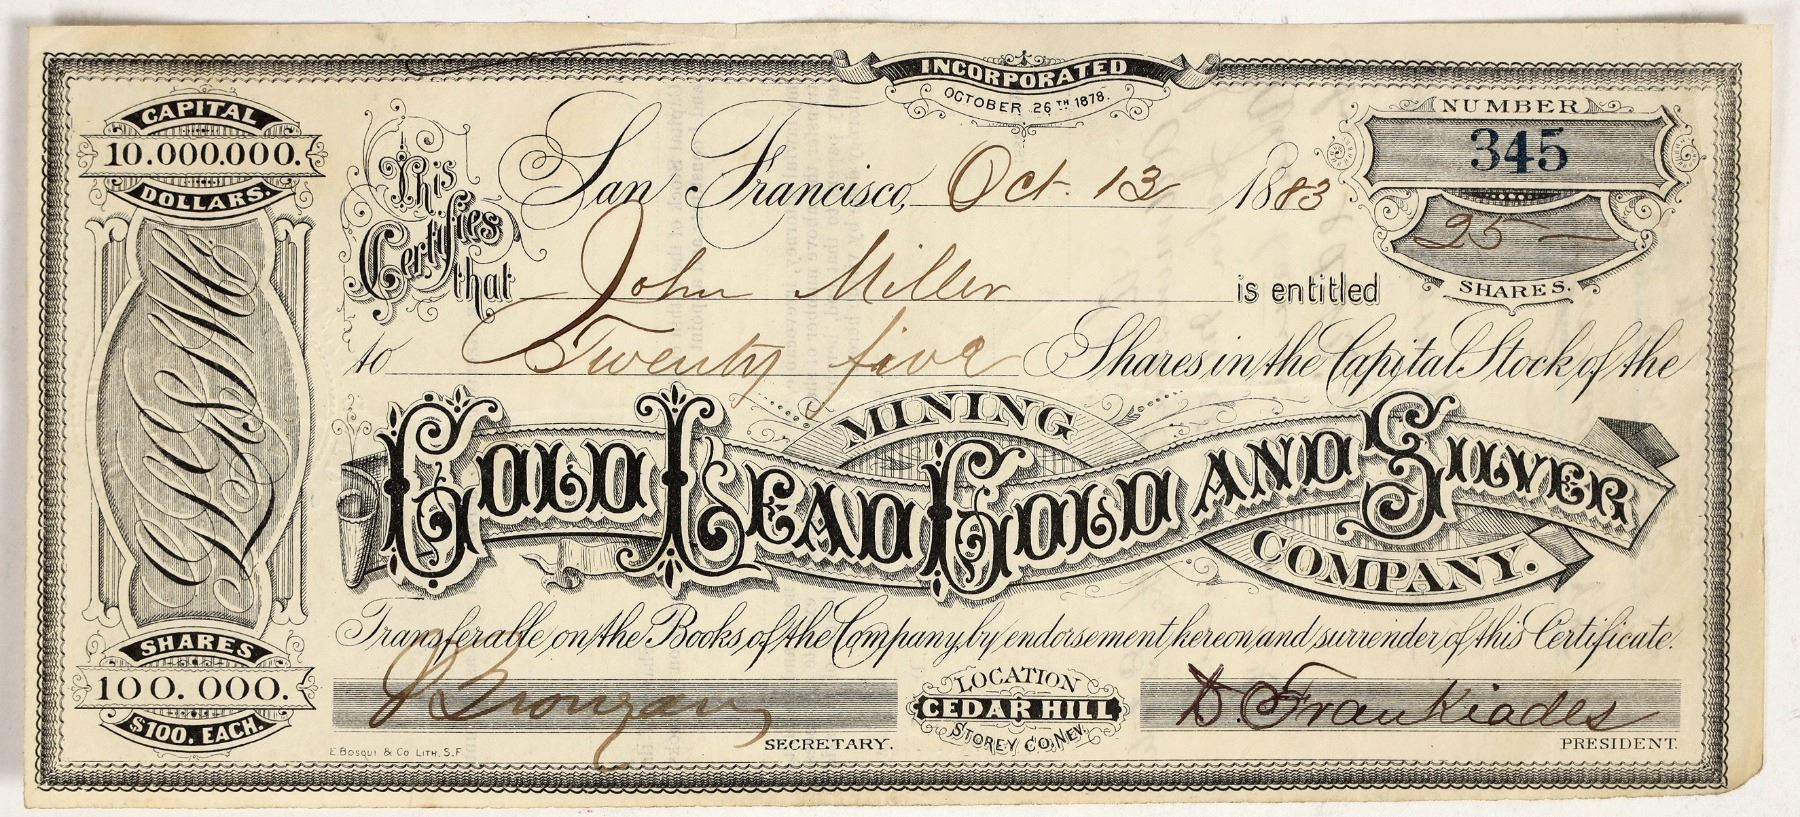 INCORPORATED
OCTOBER 26TH 1878.
CAPITAL
10.000.000.
DOLLARS.
NUMBER
345
25 —
SHARES.
San Francisco, Oct. 13 1883
This Certifies that John Miller is entitled
to Twenty five Shares in the Capital Stock of the
GOLD LEAD GOLD AND SILVER
MINING
COMPANY.
Transferable on the Books of the Company by endorsement hereon and surrender of this Certificate.
GLG&SMCo
SHARES
100.000.
$100. EACH.
SECRETARY.
LOCATION
CEDAR HILL
STOREY CO. NEV.
D. Frankiades
PRESIDENT.
E. BOSQUI & CO LITH. S.F.